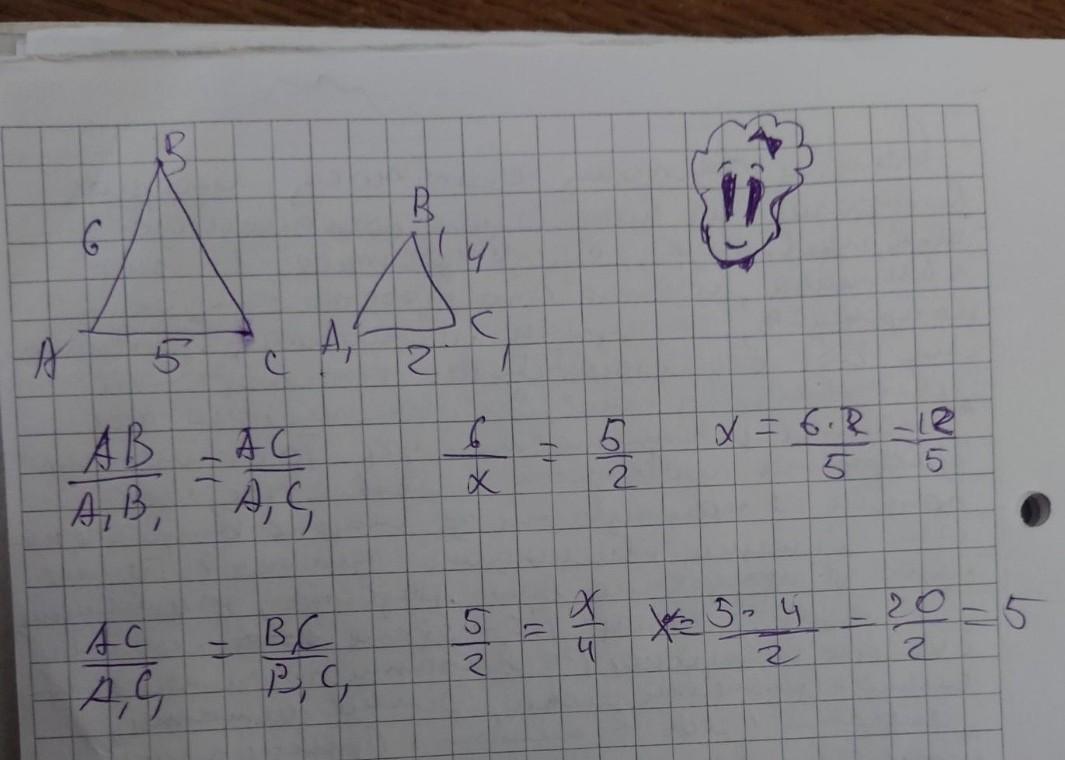 B
6
B₁
4
A 5 C
A₁ 2 C₁
AB/A₁B₁ = AC/A₁C₁ 6/x = 5/2 x = 6·2/5 = 12/5
AC/A₁C₁ = BC/B₁C₁ 5/2 = x/4 x = 5·4/2 = 20/2 = 5